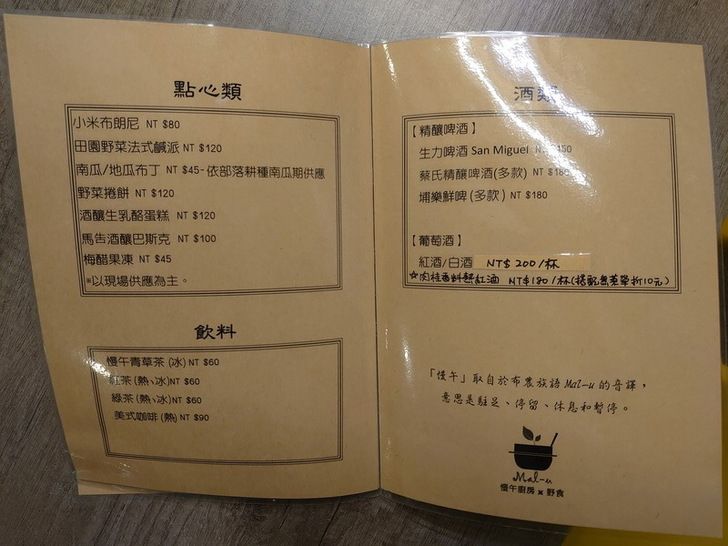 點心類
小米布朗尼 NT $80
田園野菜法式鹹派 NT $120
南瓜/地瓜布丁 NT $45-依部落耕種南瓜期供應
野菜捲餅 NT $120
酒釀生乳酪蛋糕 NT $120
馬告酒釀巴斯克 NT $100
梅醋果凍 NT $45
*以現場供應為主。
飲料
慢午青草茶(冰) NT $60
紅茶(熱、冰)NT $60
綠茶(熱、冰)NT $60
美式咖啡(熱) NT $90
酒類
【精釀啤酒】
生力啤酒 San Miguel
蔡氏精釀啤酒(多款) NT
埔樂鮮啤(多款) NT $180
【葡萄酒】
紅酒/白酒 NT$ 200/杯
☆肉桂香料熱紅酒 NT$180/杯(搭配無菜單折10元)
「慢午」取自於布農族語 Mal-u 的音譯，
意思是駐足、停留、休息和暫停。
Mal-u
慢午廚房 x 野食